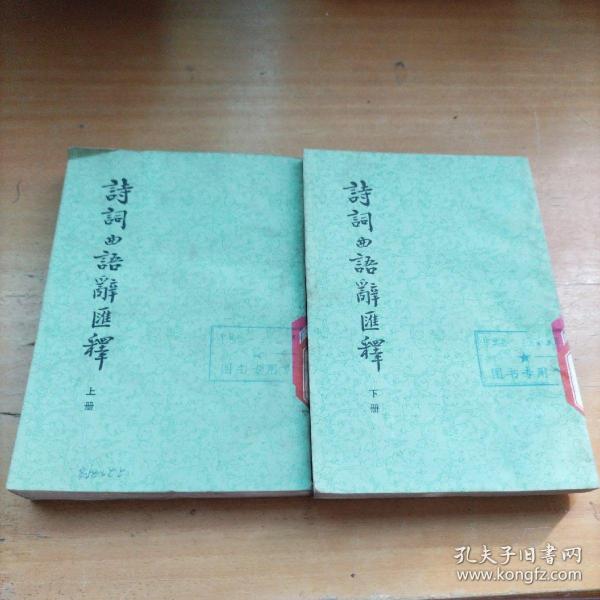 詩詞曲語辭匯釋
上册
图书专用
詩詞曲語辭匯釋
下册
图书专用
孔夫子旧书网
www.kongfz.com